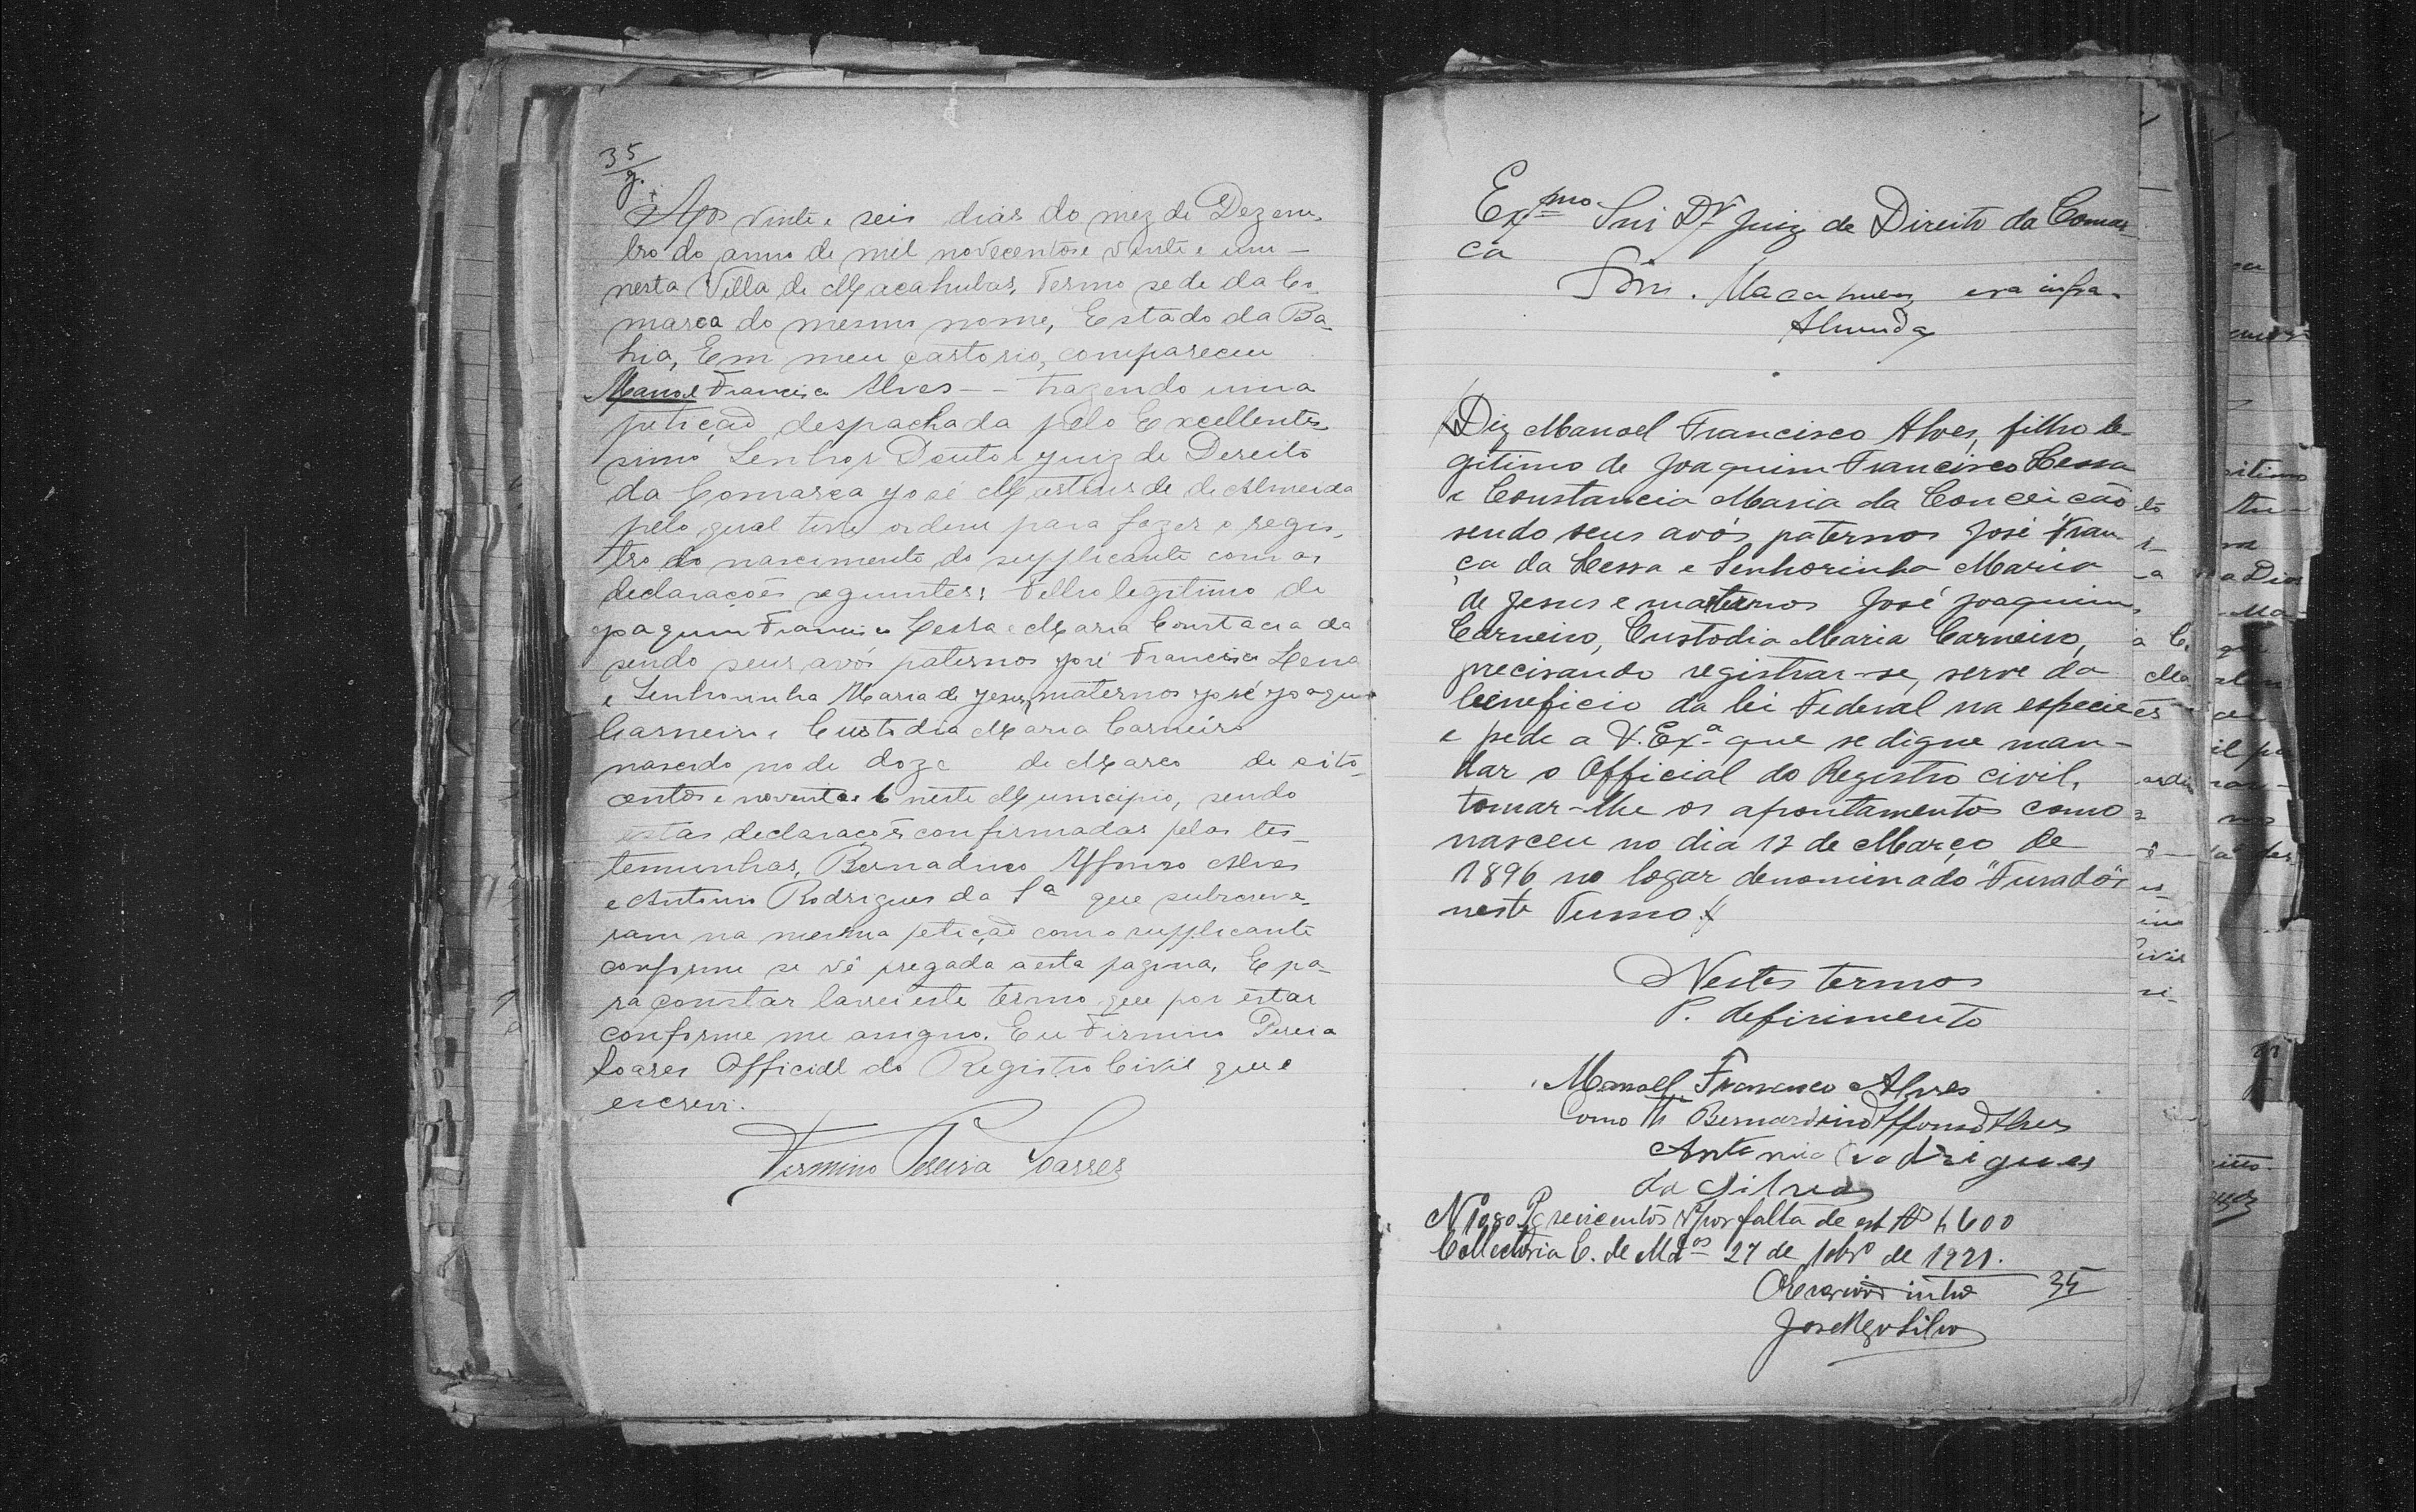 35
Aos vinte e seis dias do mez de Dezem
bro do anno de mil novecentos e vinte e um —
nesta Villa de Macahubas, Termo sede da Co
marca do mesmo nome, Estado da Ba-
hia, Em meu cartorio, compareceu
Manoel Francisco Alves — trazendo uma
petição despachada pelo Excellentis
simo Senhor Doutor Juiz de Dereito
da Comarca José de Almeida
pelo qual tive ordem para fazer o regis-
tro do nascimento do supplicante com as
declarações seguintes: Filho legitimo de
Joaquim Francisco Lessa e Maria Constacia da
sendo seus avós paternos José Francisco Lessa
e Senhorinha Maria de Jesus, maternos José Joaquim
Carneiro e Custodia Maria Carneiro
nascido no de doze de Março de oito-
centos e noventa e 6 neste Municipio, sendo
estas declarações confirmadas pelas tes-
temunhas, Bernadino Affonso Alves
e Antonio Rodrigues da Sª que subscreve-
ram na mesma petição com o supplicante
conforme se vê pregada a esta pagina. E pa-
ra constar lavrei este termo que por estar
conforme me assigno. Eu Firmino Pereira
Soares Official do Registro Civil que e
escrevi.
Firmino Pereira Soares
Exmo Snr Dr Juiz de Direito da Comar
ca
Sim. Macahubas, era infra.
Almeida
Diz Manoel Francisco Alves, filho le-
gitimo de Joaquim Francisco Lessa
e Constancia Maria da Conceicão
sendo seus avós paternos José Fran-
ça da Lessa e Senhorinha Maria
de Jesus e maternos José Joaquim
Carneiro, Custodia Maria Carneiro,
precisando registrar-se, serve da
beneficio da lei Federal na especie
e pede a V. Exª que se digne man-
dar o Official do Registro civil,
tomar-lhe os apontamentos como
nasceu no dia 12 de Março de
1896 no logar denominado "Furados"
neste Termo.
Nestes termos
P. defirimento
Manoel Francisco Alves
Como Tª Bernardino Affonso Alves
Antonio Rodrigues
da Silva
Nº Pg seiscentos rs por falta de est $600
Collectoria E. de 27 de 10brº de 1921.
35